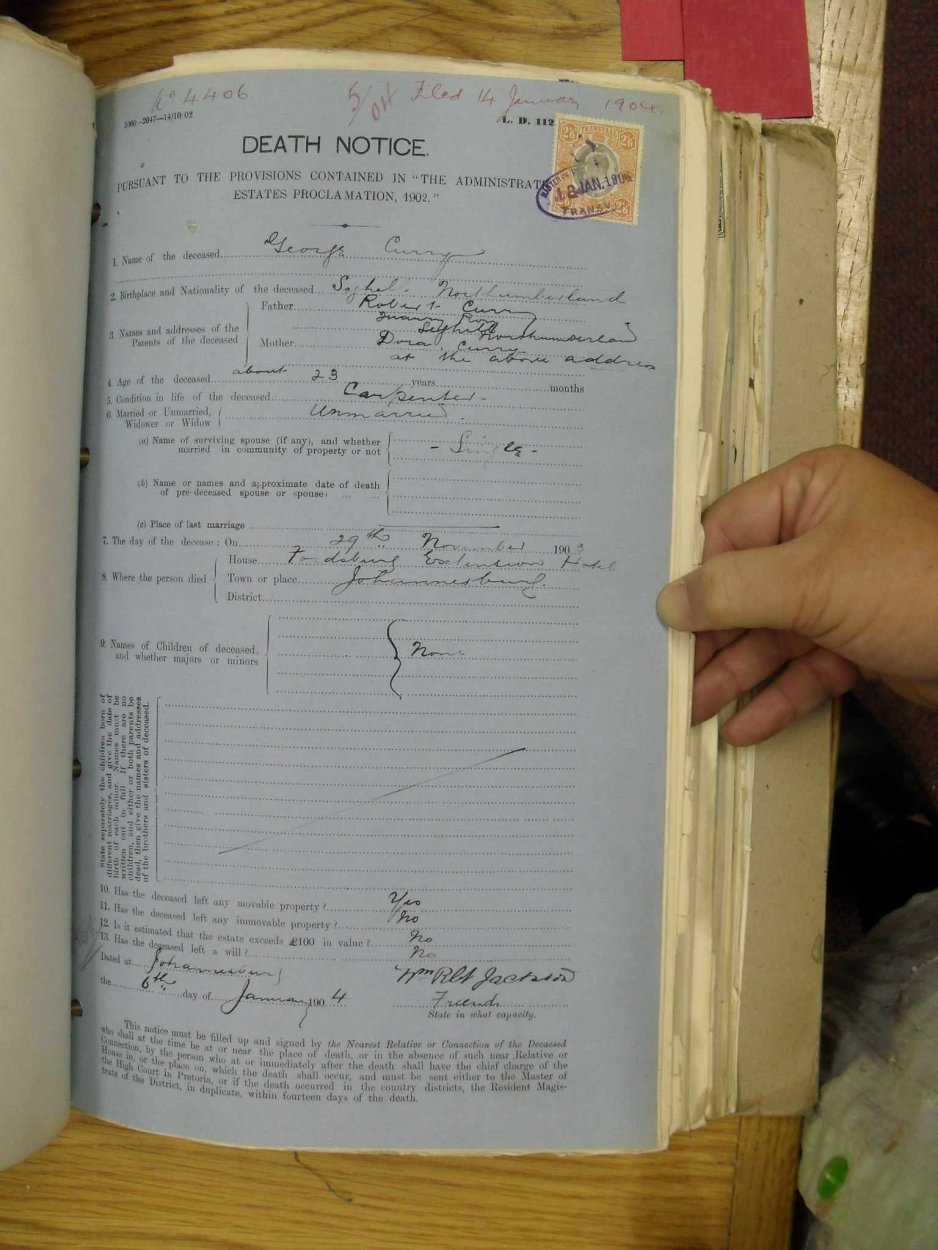 No 4406
5/04 Filed 14 January 1904.
3360—2047—14/10 02
L. D. 112
2/6 TRANSVAAL 2/6
JAN. 1904
TRANSV
2/6
DEATH NOTICE.
PURSUANT TO THE PROVISIONS CONTAINED IN "THE ADMINISTRAT
ESTATES PROCLAMATION, 1902."
1. Name of the deceased George Curry
2. Birthplace and Nationality of the deceased Seghel. Northumberland
3. Names and addresses of the Parents of the deceased
Father Robert Curry
Row
Seghill Northumberland
Mother Dora Curry
at the above address
4. Age of the deceased about 23 years months
5. Condition in life of the deceased Carpenter
6. Married or Unmarried, Widower or Widow Unmarried.
(a) Name of surviving spouse (if any), and whether married in community of property or not - Single -
(b) Name or names and approximate date of death of pre-deceased spouse or spouses
(c) Place of last marriage
7. The day of the decease: On 29th November 1903
8. Where the person died
House Fordsburg Extention Hotel
Town or place Johannesburg
District
9. Names of Children of deceased, and whether majors or minors None
State separately the children born of
different marriages, and give the date of
birth of each minor. Names must be
written out in full. If there are no
children, and either or both parents be
dead, then give the names and addresses
of the brothers and sisters of deceased.
10. Has the deceased left any movable property? Yes
11. Has the deceased left any immovable property? No
12. Is it estimated that the estate exceeds £100 in value? No
13. Has the deceased left a will? No
Dated at Johannesburg
Wm Robt Jackson
the 6th day of January 1904
Friend
State in what capacity.
This notice must be filled up and signed by the Nearest Relative or Connection of the Deceased
who shall at the time be at or near the place of death, or in the absence of such near Relative or
Connection, by the person who at or immediately after the death shall have the chief charge of the
House in, or the place on, which the death shall occur, and must be sent either to the Master of
the High Court in Pretoria, or if the death occurred in the country districts, the Resident Magis-
trate of the District, in duplicate, within fourteen days of the death.